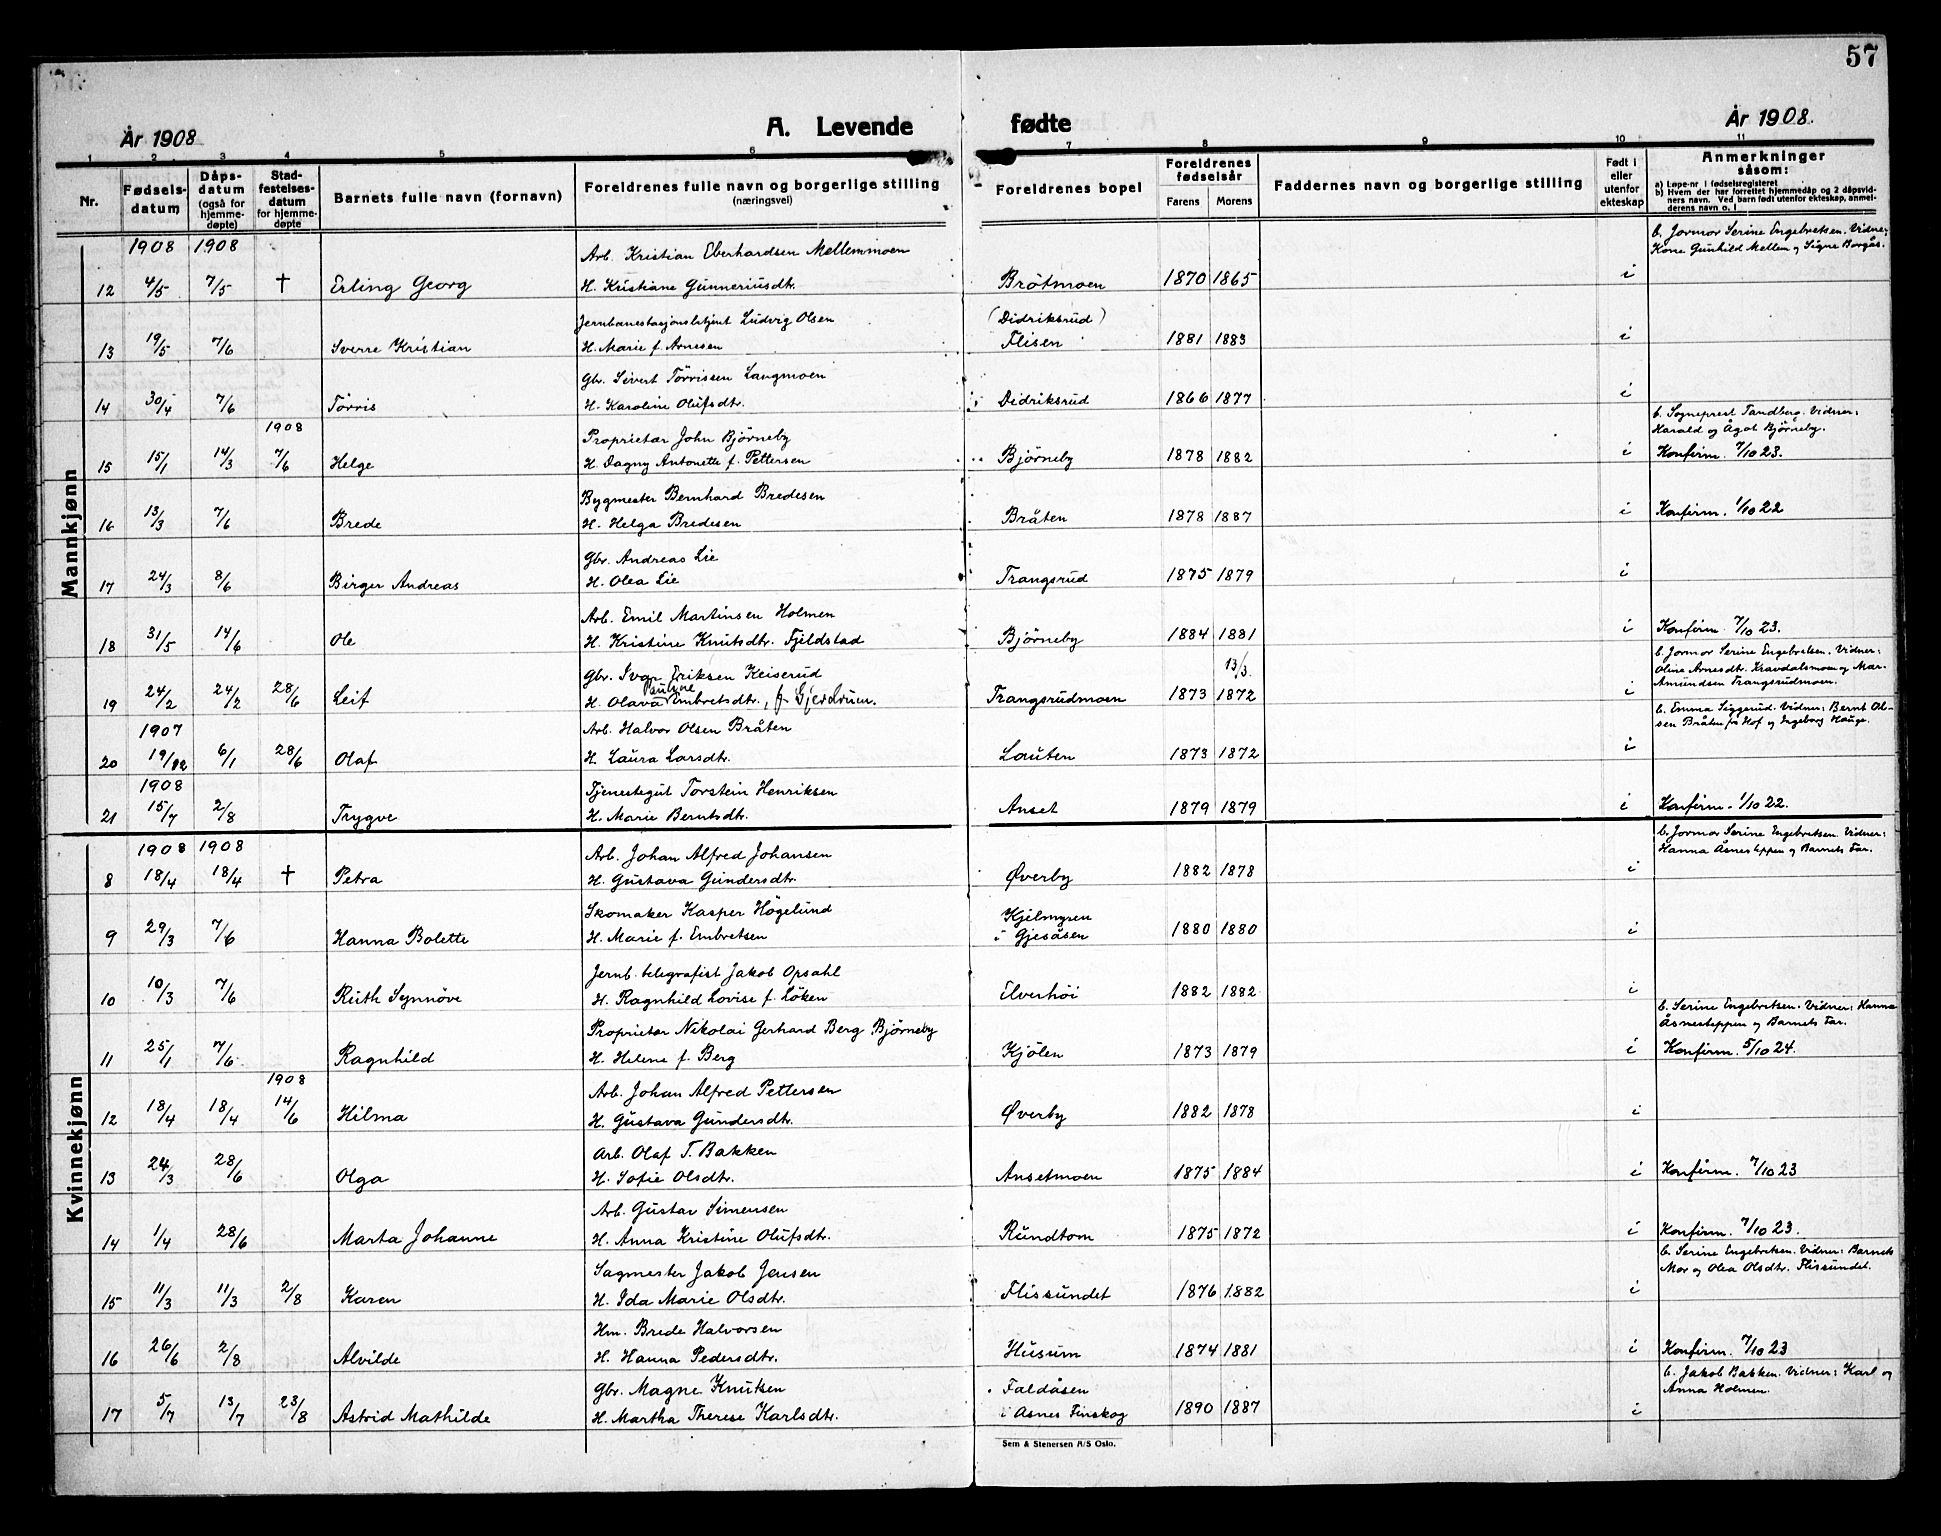 57
År 1908
A. Levende fødte
År 1908.
1 2 3 4 5 6 7 8 9 10 11
Nr. Fødselsdatum Dåpsdatum (også for hjemmedøpte) Stadfestelsesdatum for hjemmedøpte Barnets fulle navn (fornavn) Foreldrenes fulle navn og borgerlige stilling (næringsvei) Foreldrenes bopel Foreldrenes fødselsår Farens Morens Faddernes navn og borgerlige stilling Født i eller utenfor ekteskap Anmerkninger såsom:
a) Løpe-nr i fødselsregisteret
b) Hvem der har forrettet hjemmedåp og 2 dåpsvidners navn. Ved barn født utenfor ekteskap, anmelderens navn o. l
Mannkjønn
1908 1908 Arb. Kristian Eberhardsen Mellemmoen b. Jormor Serine Engebretsen. Vidner:
Kone Gunhild Mellem og Signe Borgås.
12 4/5 7/5 † Erling Georg H. Kristiane Gunneriusdtr. Bråtmoen 1870 1865 i
Jernbanestasjonsbetjent Ludvig Olsen (Didriksrud)
13 19/5 7/6 Sverre Kristian H. Marie f. Arnesen Flisen 1881 1883 i
Gbr. Sivert Törrissen Langmoen
14 30/4 7/6 Törris H. Karoline Olufsdtr. Didriksrud 1866 1877 i
1908 Proprietær John Björneby b. Sogneprest Tandberg. Vidner:
Harald og Ågot Björneby.
15 15/1 14/3 7/6 Helge H. Dagny Antonette f. Pettersen Björneby 1878 1882 i Konfirm. 7/10 23.
Bygmester Bernhard Bredesen
16 13/3 7/6 Brede H. Helga Bredesen Bråten 1878 1887 i Konfirm. 1/10 22
Gbr. Andreas Lie
17 24/3 8/6 Birger Andreas H. Olea Lie Trangsrud 1875 1879 i
Arb. Emil Martinsen Holmen
18 31/5 14/6 Ole H. Kristine Knutsdtr. Fjeldstad Björneby 1884 1881 i Konfirm. 7/10 23.
Gbr. Ivar Eriksen Keiserud 13/3 b. Jormor Serine Engebretsen. Vidner:
Oline Arnesdtr. Kravdalsmoen og Mar.
Amundsen Trangsrudmoen.
19 24/2 24/2 28/6 Leif H. Olava Pauline Embretsdtr., f. Gjerdrum. Trangsrudmoen 1873 1872 i
1907 Arb. Halvor Olsen Bråten b. Emma Siggerud. Vidner: Bernt Olsen Bråten fra Hof og Ingeborg Hauge.
20 19/12 6/1 28/6 Olaf H. Laura Larsdtr. Lauten 1873 1872 i
1908 Tjenestegut Torstein Henriksen
21 15/7 2/8 Trygve H. Marie Berntsdtr. Anset 1879 1879 i Konfirm. 1/10 22.
Kvinnekjønn
1908 1908 Arb. Johan Alfred Johansen b. Jormor Serine Engebretsen. Vidner:
Hanna Åsnesteppen og Barnets Far.
8 18/4 18/4 † Petra H. Gustava Gundersdtr. Øverby 1882 1878 i
Skomaker Kasper Högelund Kjelmyren
9 29/3 7/6 Hanna Bolette H. Marie f. Embretsen i Gjesåsen 1880 1880 i
Jernb. telegrafist Jakob Opsahl
10 10/3 7/6 Ruth Synnöve H. Ragnhild Lovise f. Löken Elverhöi 1882 1882 i
Proprietær Nikolai Gerhard Berg Björneby b. Serine Engebretsen. Vidner: Hanna
Åsnesteppen og Barnets Far.
11 25/1 7/6 Ragnhild H. Helene f. Berg Kjölen 1873 1879 i Konfirm. 5/10 24.
1908 Arb. Johan Alfred Pettersen
12 18/4 18/4 14/6 Hilma H. Gustava Gundersdtr. Øverby 1882 1878 i
Arb. Olaf T. Bakken
13 24/3 28/6 Olga H. Sofie Olsdtr. Ansetmoen 1875 1884 i Konfirm. 7/10 23
Arb. Gustav Simensen
14 1/4 28/6 Marta Johanne H. Anna Kristine Olufsdtr. Rundtom 1875 1872 i Konfirm. 7/10 23.
Sagmester Jakob Jensen b. Serine Engebretsen. Vidner: Barnets
Mor og Olea Olsdtr. Flissundet.
15 11/3 11/3 2/8 Karen H. Ida Marie Olsdtr. Flissundet 1876 1882 i
Hm. Brede Halvorsen
16 26/6 2/8 Alvilde H. Hanna Pedersdtr. Husum 1874 1881 i Konfirm. 7/10 23
Gbr. Magne Knutsen Faldåsen b. Jakob Bakken. Vidner: Karl og
Anna Holmen.
17 5/7 13/7 23/8 Astrid Mathilde H. Martha Therese Karlsdtr. i Åsnes Finskog 1890 1887 i
Sem & Stenersen A/S Oslo.